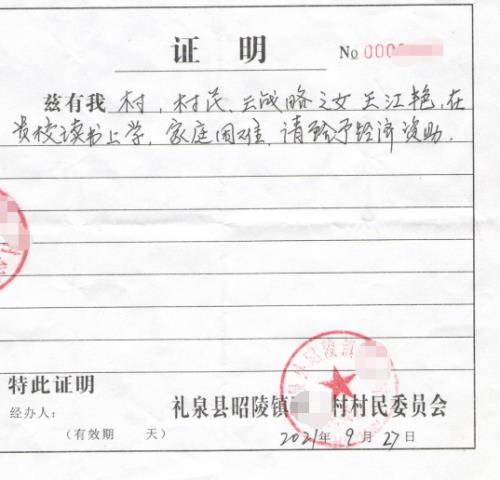 证明
No 000
兹有我村,村民、王战略之女王江艳,在
贵校读书上学,家庭困难,请给予经济资助.
特此证明
经办人:
礼泉县昭陵镇 村村民委员会
(有效期 天)
2021年9月27日